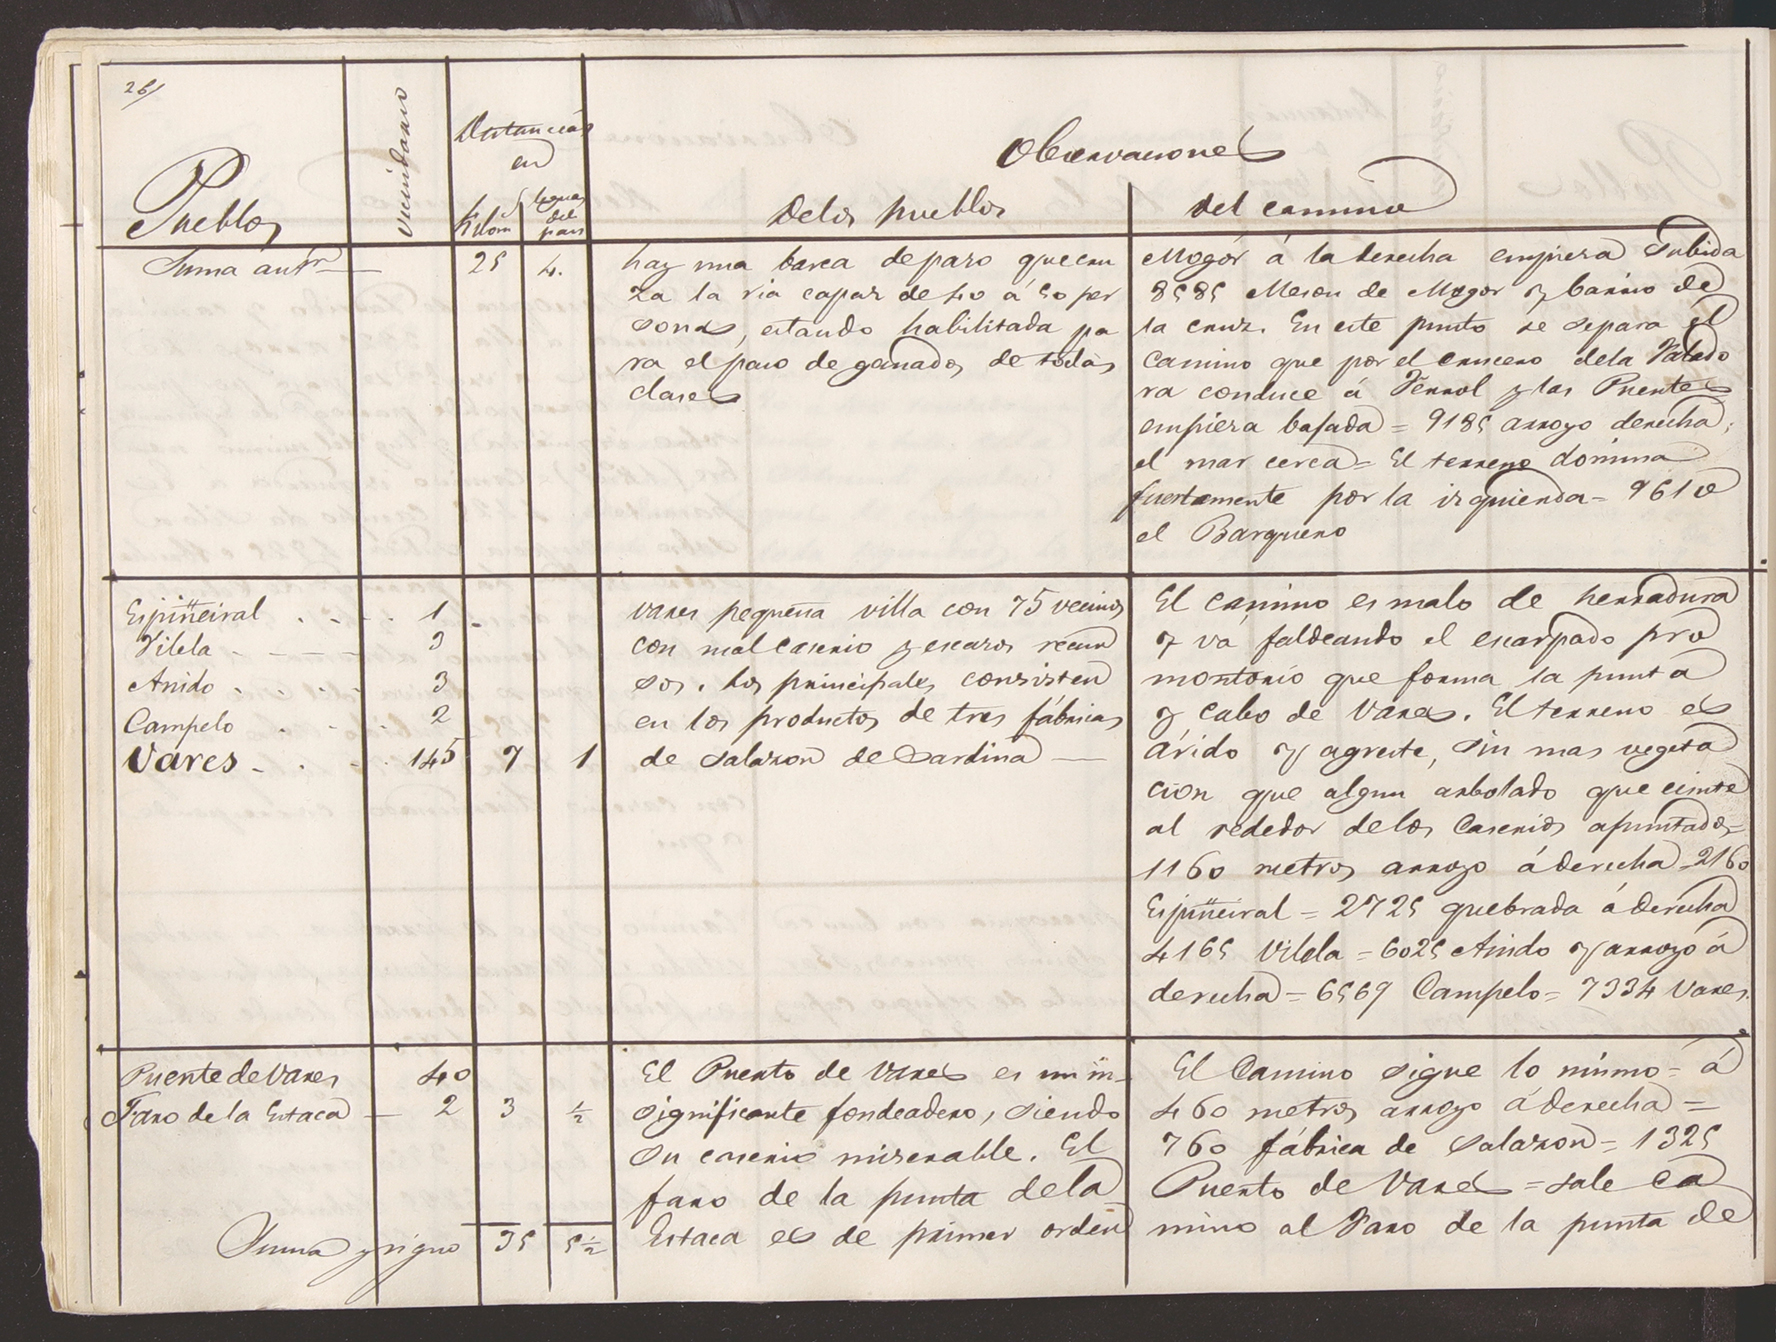 26/
Pueblos
Vecindario
Distancias
en
Kilom
leguas
del
pais
Observaciones
De los pueblos
del camino
Suma antr
25
4.
hay una barca de paso que cru
za la ria capaz de 40 á 50 per
sonas, estando habilitada pa
ra el paso de ganados de todas
clases
Mogór á la derecha empieza subida
8585 Meson de Mogor y barrio de
la cruz. En este punto se separa el
camino que por el crucero dela Valado
ra conduce á Ferrol y las Puentes
empieza bajada = 9185 arroyo derecha,
el mar cerca = El terreno domina
fuertemente por la izquierda = 9610
el Barquero
Espiñeiral . . - . . 1
Vilela - - - - 3
Anido . . . . 3
Campelo . . . 2
Vares - . . . 145 7 1
Vares pequeña villa con 75 vecinos
con mal caserio y escasos recur
sos. Los principales consisten
en los productos de tres fábricas
de salazon de sardina —
El camino es malo de herradura
y vá faldeando el escarpado pro
montorio que forma la punta
y cabo de Vares. El terreno es
árido y agreste, sin mas vegeta
cion que algun arbolado que existe
al rededor de los caserios apuntados =
1160 metros arroyo á derecha = 2160
Espiñeiral = 2725 quebrada á derecha
4165 Vilela = 6025 Anido y arroyo á
derecha = 6569 Campelo = 7334 Vares.
Puerto de Vares 40
Faro de la Estaca — 2 3 ½
El Puerto de Vares es un in-
significante fondeadero, siendo
su caserio miserable. El
faro de la punta dela
Estaca es de primer orden
El Camino sigue lo mismo = á
460 metros arroyo á derecha =
760 fábrica de salazon = 1325
Puerto de Vares = sale ca
mino al Faro de la punta de
Suma y sigue 35 5½